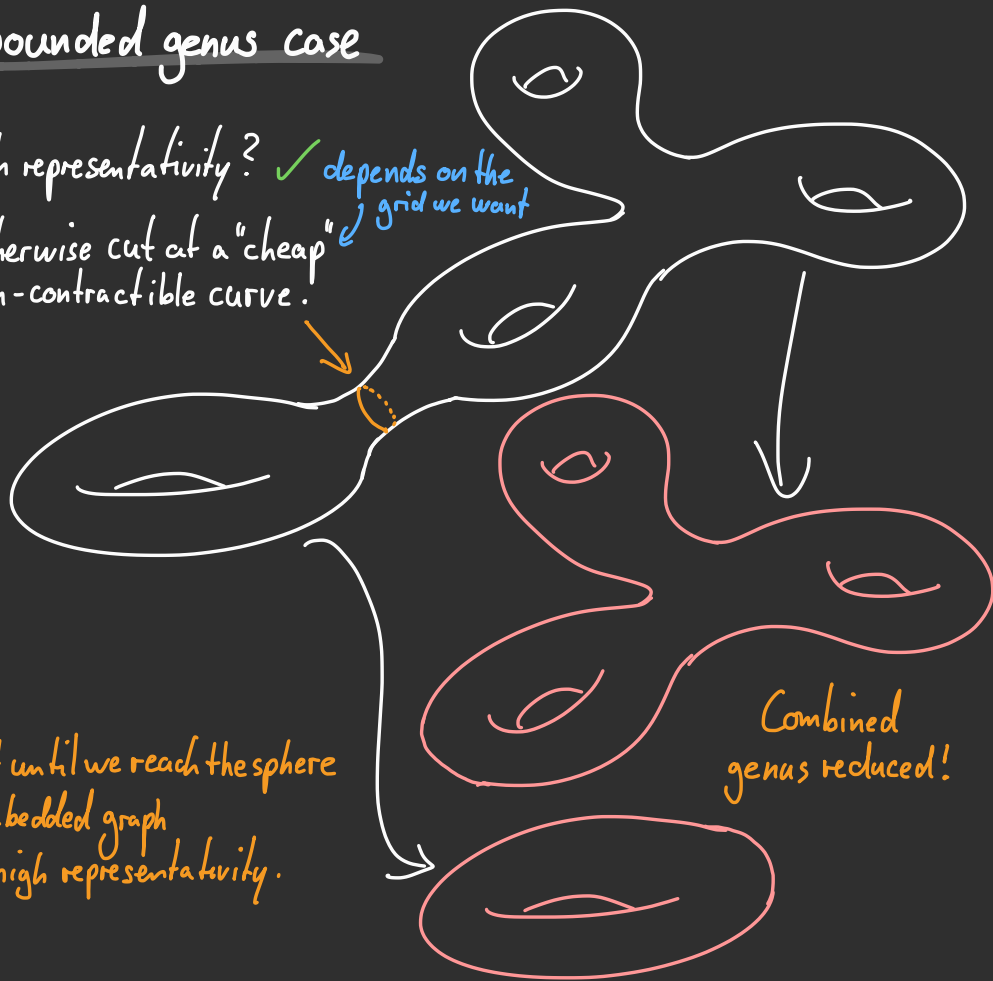 bounded genus case
h representativity? ✓
depends on the
grid we want
herwise cut at a "cheap"
n-contractible curve!
Combined
genus reduced!
t until we reach the sphere
bedded graph
high representativity.